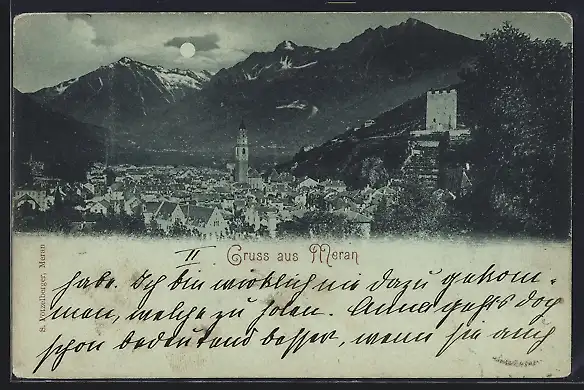 Gruss aus Meran
S. Pötzelberger, Meran
II
habe. Ich bin wirklich nie dazu gekom-
men, welche zu holen. Anna geht's doch
schon bedeutend besser, wenn sie auch